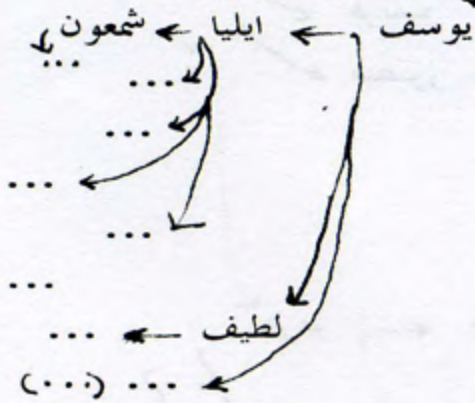 يوسف ايليا شمعون
...
...
...
...
...
...
لطيف ...
... (...)